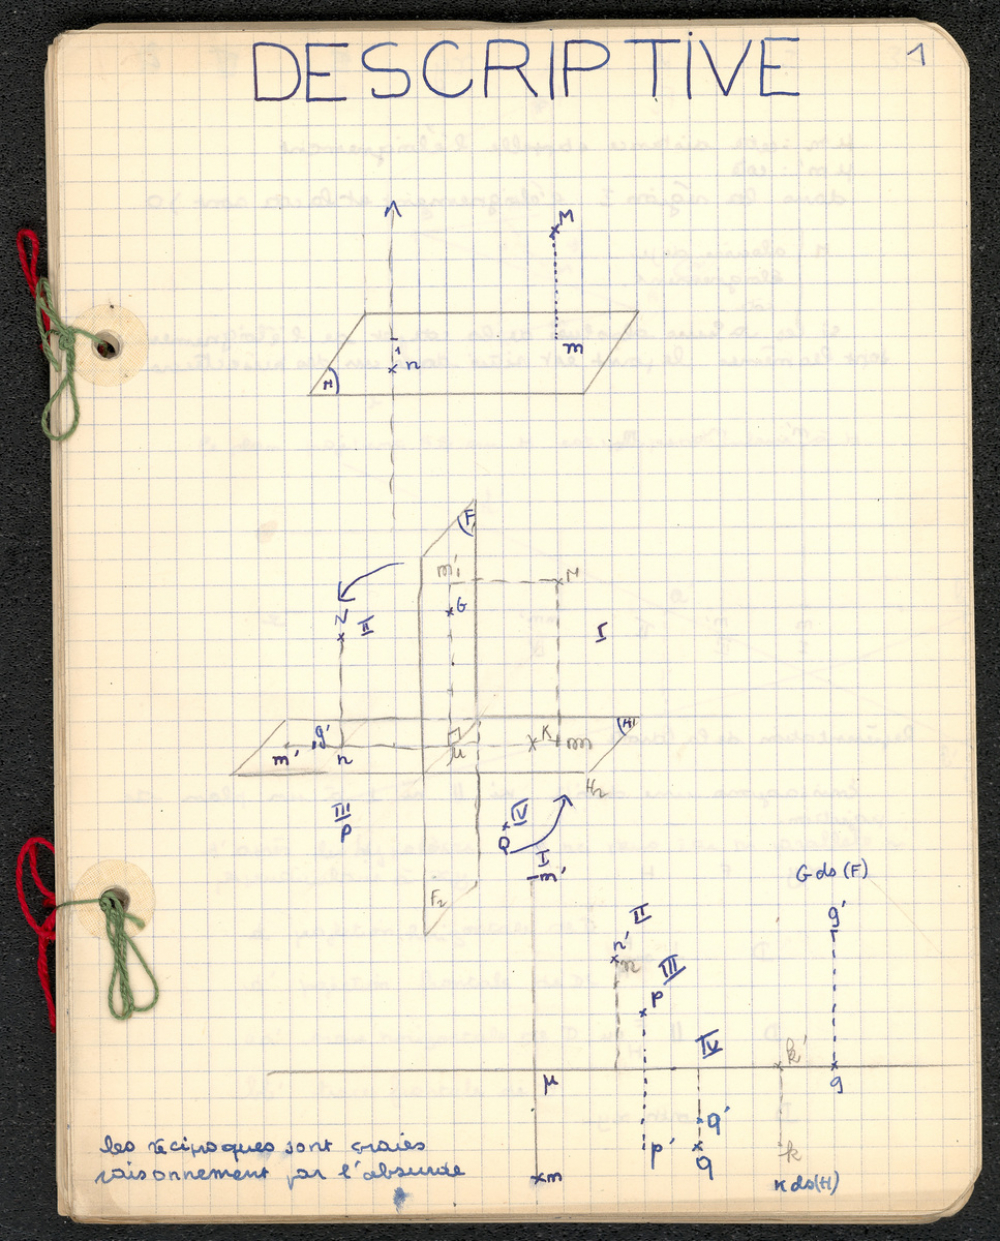 DESCRIPTIVE
1
M
m
n
(H)
(F)
m'₁
M
G
N
II
I
g'
m'
n
μ
K
m
(H)
H₂
III
P
IV
Q
F₂
I
m'
G ds (F)
II
n'
n
g'
III
P
IV
k'
μ
g
q'
p'
q
k
m
K ds (H)
les réciproques sont vraies
raisonnement par l'absurde